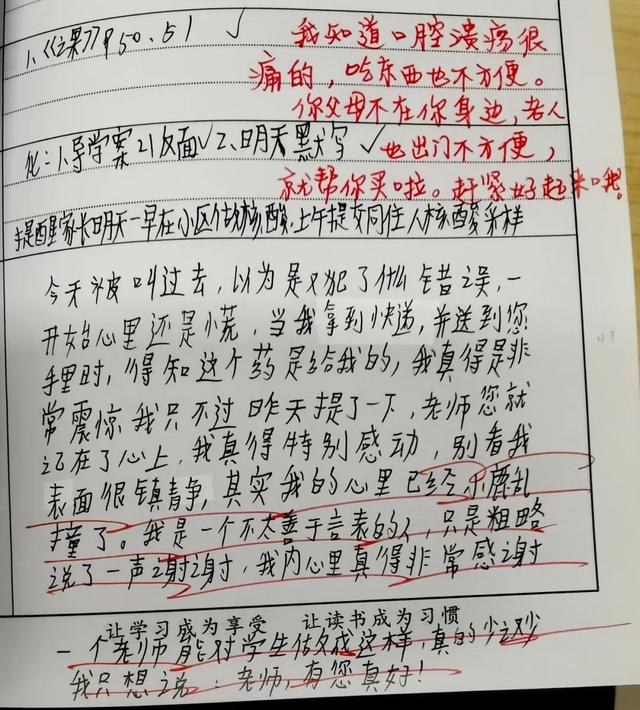 1、《结果》P50、51 ✓
我知道口腔溃疡很
痛的，吃东西也不方便。
你父母不在你身边，老人
化：1、导学案21反面✓2、明天默写✓
也出门不方便，
就帮你买啦。赶紧好起来哦！
提醒家长明天一早在小区做核酸，上午提交同住人核酸采样
今天被叫过去，以为是又犯了什么错误，一
开始心里还是慌，当我拿到快递，并送到您
手里时，得知这个药是给我的，我真得是非
常震惊我只不过昨天提了一下，老师您就
记在了心上，我真得特别感动，别看我
表面很镇静，其实我的心里已经小鹿乱
撞了。我是一个不太善于言表的人，只是粗略
说了一声谢谢，我内心里真得非常感谢
让学习成为享受 让读书成为习惯
一个老师能对学生做成这样，真的少之又少
我只想说：老师，有您真好！